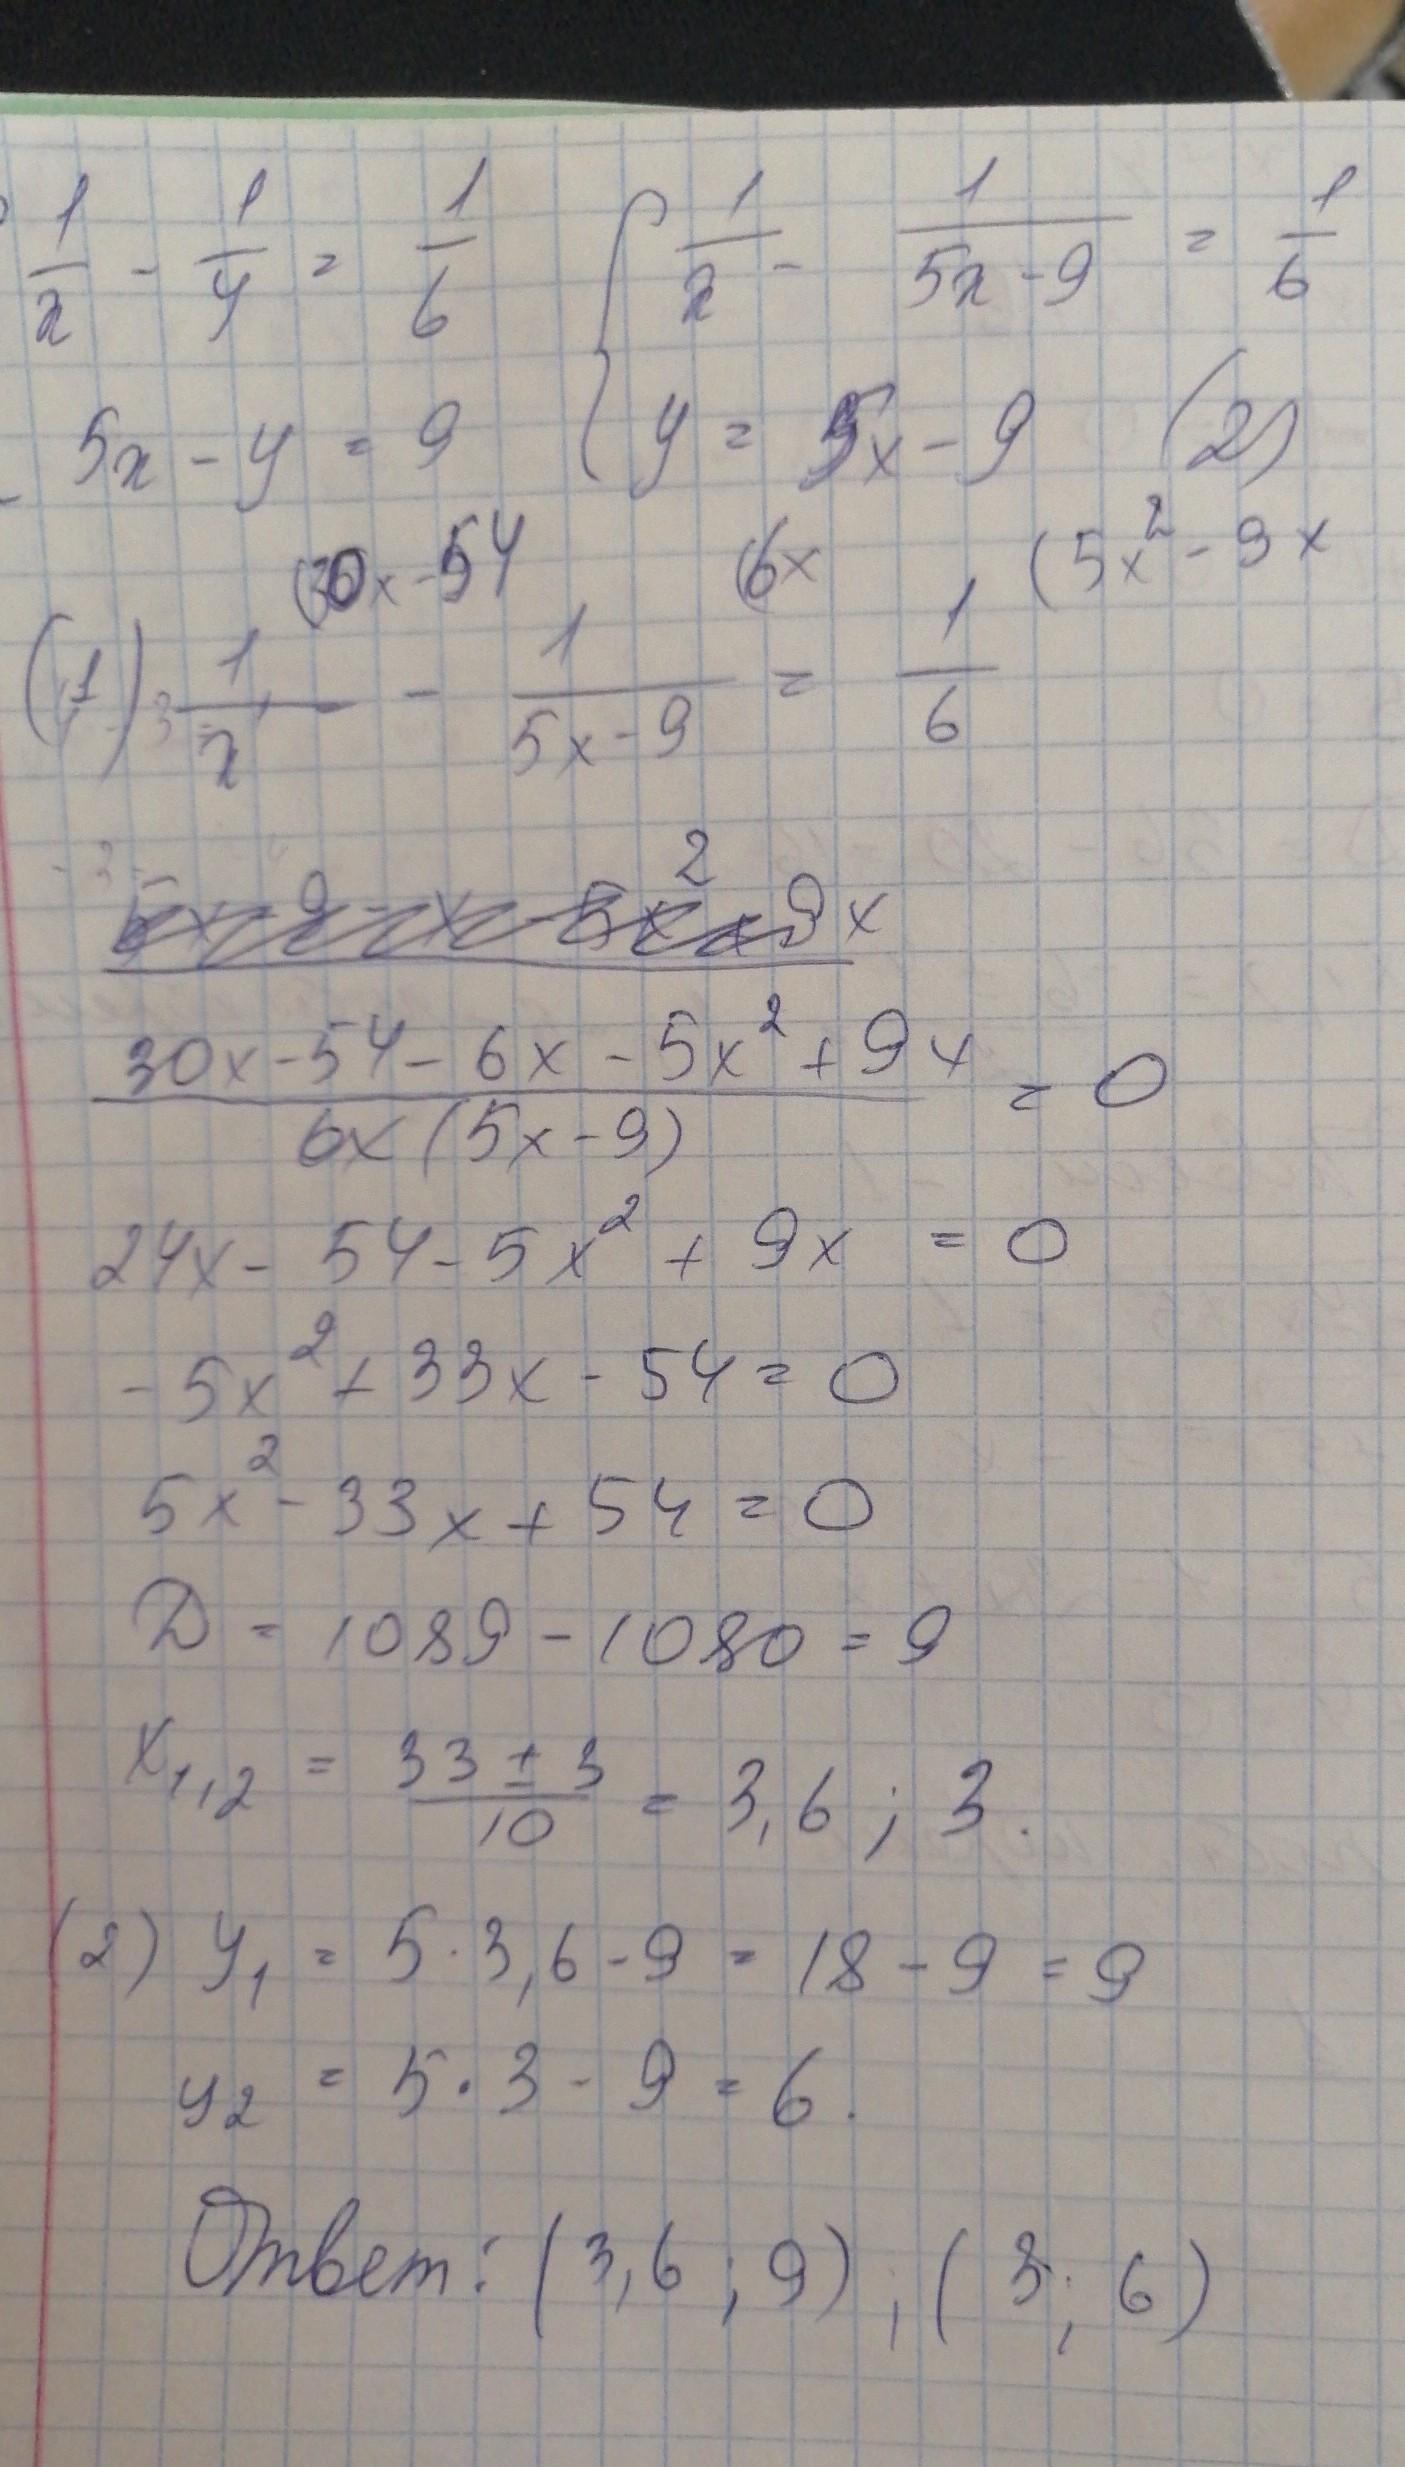 1/x - 1/y = 1/6 { 1/x - 1/(5x-9) = 1/6
5x - y = 9 y = 5x - 9 (2)
(30x-54 (6x (5x² - 9x
(1) 1/x - 1/(5x-9) = 1/6
9x
(30x-54-6x-5x²+9x)/(6x(5x-9)) = 0
24x - 54 - 5x² + 9x = 0
-5x² + 33x - 54 = 0
5x² - 33x + 54 = 0
D = 1089 - 1080 = 9
x₁,₂ = (33 ± 3)/10 = 3,6 ; 3.
(2) y₁ = 5·3,6 - 9 = 18 - 9 = 9
y₂ = 5·3 - 9 = 6.
Ответ: (3,6 ; 9) ; (3 ; 6)